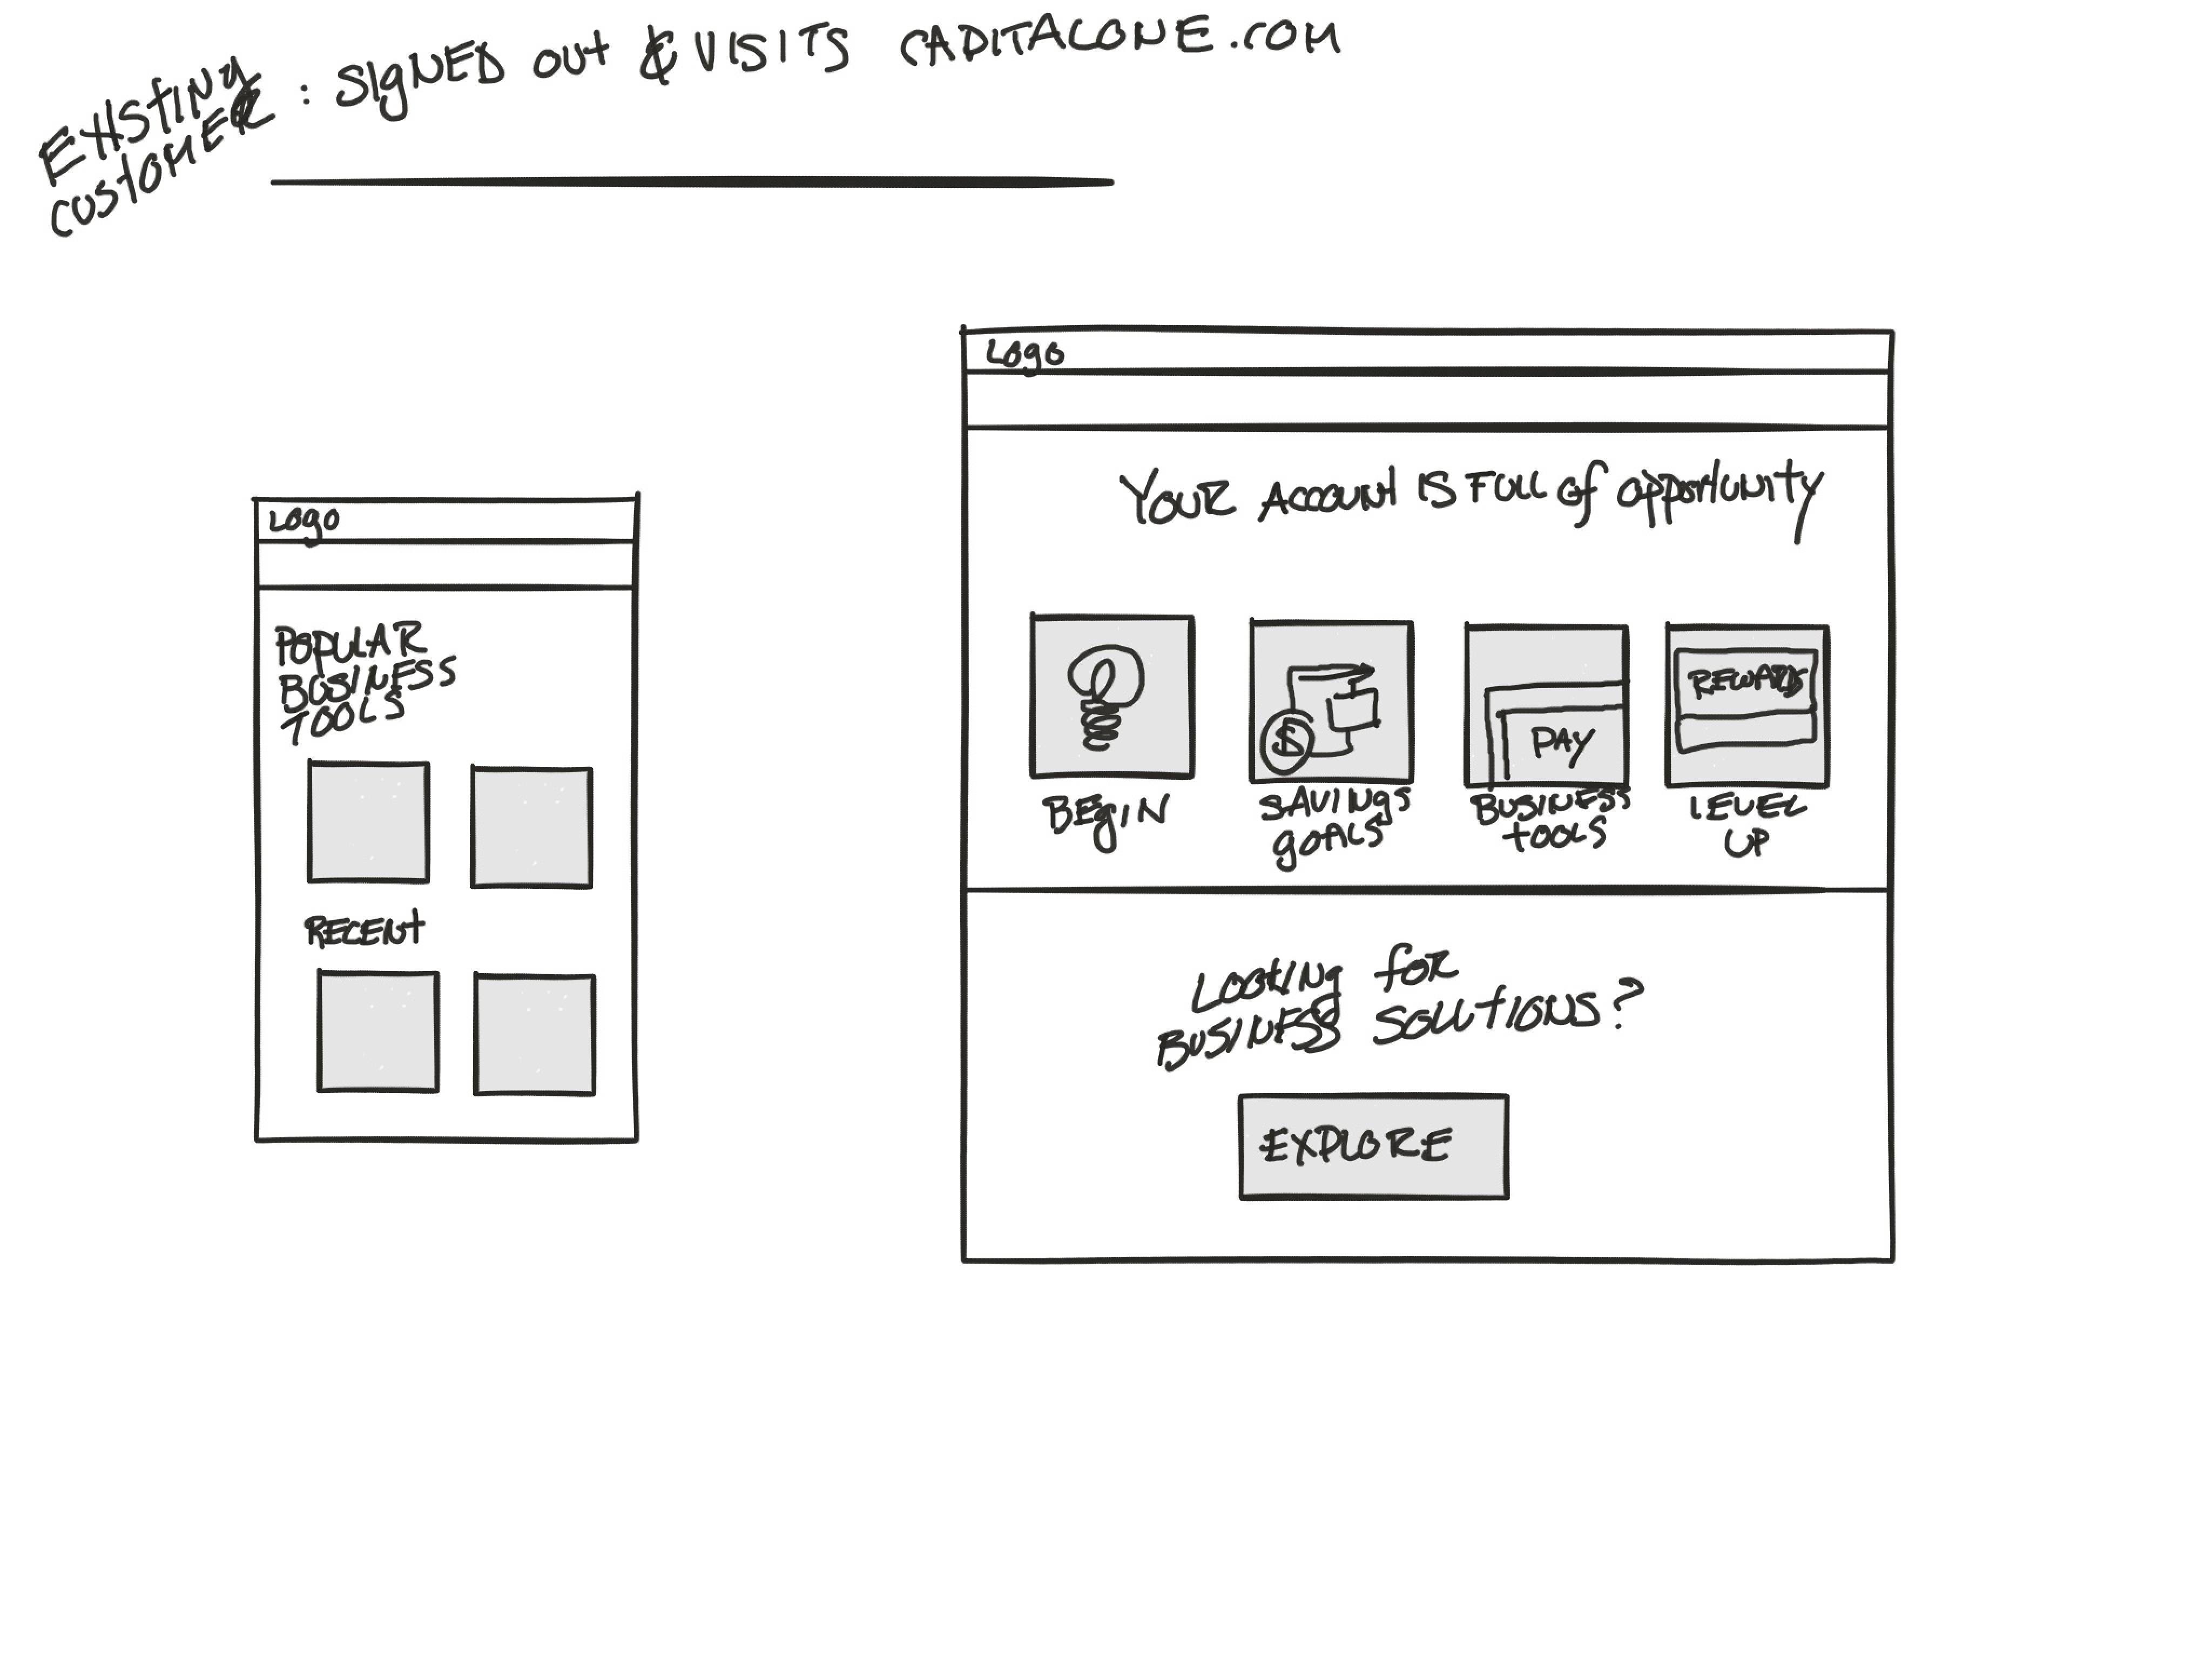 EXISTING CUSTOMER : SIGNED OUT & VISITS CAPITALONE.COM
Logo
POPULAR
BUSINESS
TOOLS
RECENT
Logo
YOUR ACCOUNT IS FULL OF OPPORTUNITY
REWARDS
$
PAY
BEGIN
SAVINGS
GOALS
BUSINESS
TOOLS
LEVEL
UP
LOOKING FOR
BUSINESS SOLUTIONS?
EXPLORE